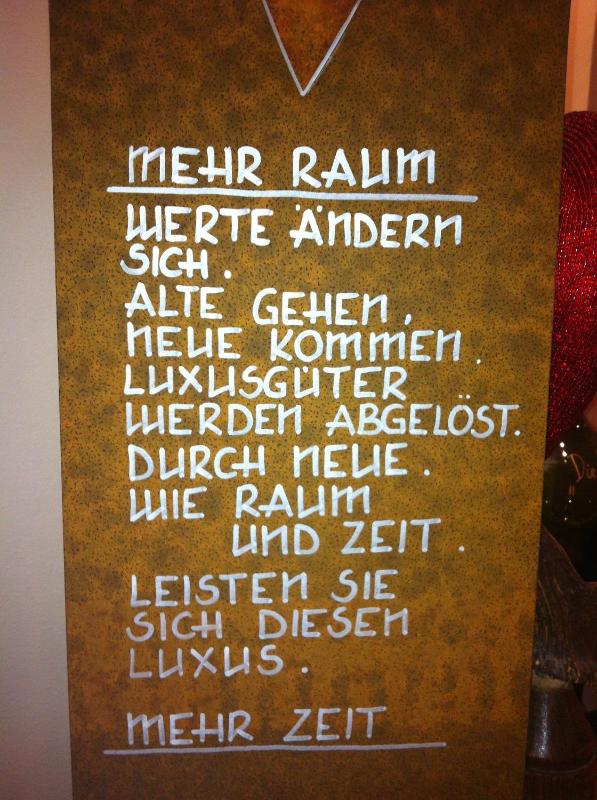 MEHR RAUM
WERTE ÄNDERN
SICH.
ALTE GEHEN,
NEUE KOMMEN.
LUXUSGÜTER
WERDEN ABGELÖST.
DURCH NEUE.
WIE RAUM
UND ZEIT.
LEISTEN SIE
SICH DIESEN
LUXUS.
MEHR ZEIT